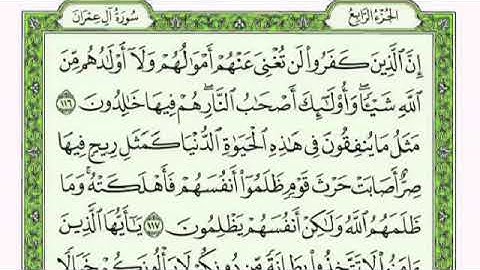 الجُزْءُ الرَّابِعُ
سُورَةُ آلِ عِمْرَانَ
إِنَّ الَّذِينَ كَفَرُوا۟ لَن تُغْنِىَ عَنْهُمْ أَمْوَٰلُهُمْ وَلَآ أَوْلَٰدُهُم مِّنَ
ٱللَّهِ شَيْـًٔا ۖ وَأُو۟لَٰٓئِكَ أَصْحَٰبُ ٱلنَّارِ ۚ هُمْ فِيهَا خَٰلِدُونَ ١١٦
مَثَلُ مَا يُنفِقُونَ فِى هَٰذِهِ ٱلْحَيَوٰةِ ٱلدُّنْيَا كَمَثَلِ رِيحٍ فِيهَا
صِرٌّ أَصَابَتْ حَرْثَ قَوْمٍ ظَلَمُوٓا۟ أَنفُسَهُمْ فَأَهْلَكَتْهُ ۚ وَمَا
ظَلَمَهُمُ ٱللَّهُ وَلَٰكِنْ أَنفُسَهُمْ يَظْلِمُونَ ١١٧ يَٰٓأَيُّهَا ٱلَّذِينَ
ءَامَنُوا۟ لَا تَتَّخِذُوا۟ بِطَانَةً مِّن دُونِكُمْ لَا يَأْلُونَكُمْ خَبَالًا